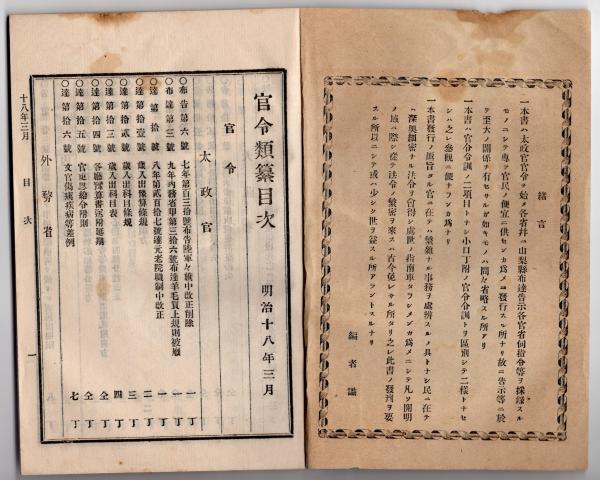 緒言
一本書ハ太政官官令ヲ始メ各省幷ニ山梨縣布達告示各官省伺指令等ヲ採錄スル
モノニシテ專ラ官民ノ便宜ニ供センカ爲メニ發行スル所ナリ故ニ告示等ニ於
テ至大ノ關係ヲ有セサルガ如キモノハ間々省略スル所アリ
一本書ハ官令令訓ノ二項目トナシ小口丁附ノ官令令訓トヲ區別シテ二樣トナセ
シハ之レ參觀ニ便ナランカ爲ナリ
一本書發行ノ旨タル官ニ在テハ繁雜ナル事務ヲ處辨スルノ具トナシ民ニ在テ
ハ深奧細密ナル法令ヲ會得シ處世ノ指南車タラシメンカ爲メニシテ凡ソ開明
ノ域ニ際シ從テ法令ノ繁密ヲ來スハ古今免レサル所タリ之レ此書ノ發刊ヲ要
スル所以ニシテ或ハ少シク世ヲ益スル所アラントスルナリ
編者識
官令類纂目次
明治十八年三月
官令
太政官
○布告第六號 七年第百三拾號布告陸軍々 中改正削除 一丁
○布達第三號 九年內務省甲第三拾六號布達羊毛買上規則被廢 一丁
○達第拾號 八年第貳百拾七號達元老院職制中改正 一丁
○達第拾壹號 歲入出豫算條規 二丁
○達第拾貳號 歲入出科目條規 三丁
○達第拾三號 歲入出科目表 四丁
○達第拾四號 各廳豫算書送附延期 仝丁
○達第拾五號 官吏恩給令附則 仝丁
○達第拾六號 文官傷痍疾病等差例 七丁
外務省
十八年三月 目次 一